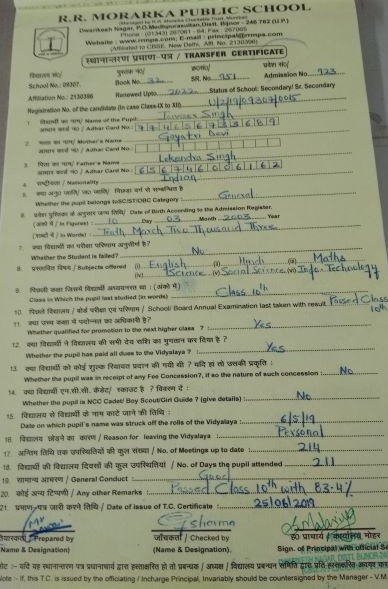 R.R. MORARKA PUBLIC SCHOOL
(Managed by R.R. Morarka Charitable Trust, Mumbai)
Dwarikesh Nagar, P.O. Medhpurasultan, Distt. Bijnor - 246 762 (U.P.)
Phone : (01343) 267061 - 64, Fax : 267065
Website : www.rrmps.com; E-mail : principal@rrmps.com
(Affiliated to CBSE, New Delhi, Affi. No. 2130396)
स्थानान्तरण प्रमाण-पत्र / TRANSFER CERTIFICATE
विद्यालय सं०/ पुस्तक सं०/ क्रम सं०/ प्रवेश सं०/
School No.: 09307. Book No. 32 SR. No. 951 Admission No. 923
Affiliation No.: 2130396 Renewed Upto. 2022 Status of School: Secondary/ Sr. Secondary
Registration No. of the candidate (in case Class-IX to XII)
1. विद्यार्थी का नाम/ Name of the Pupil Singh
आधार कार्ड नं० / Adhar Card No.:
2. माता का नाम/ Mother's Name Gayatri Devi
आधार कार्ड नं० / Adhar Card No.:
3. पिता का नाम/ Father's Name Lokendra Singh
आधार कार्ड नं० / Adhar Card No.: 656746006162
4. राष्ट्रीयता / Nationality Indian
5.
Whether the pupil belongs to SC/ST/OBC Category : General
6. प्रवेश पुस्तिका के अनुसार जन्म तिथि/ Date of Birth According to the Admission Register.
(अंकों में / In Figure) : 10 Day 03 Month 2003 Year
(शब्दों में / In Words) : Tenth March Two Thousand Three
7. क्या विद्यार्थी का परीक्षा परिणाम अनुत्तीर्ण है?
Whether the Student is failed? No
8. प्रस्तावित विषय / Subjects offered (i) English (ii) Hindi (iii) Maths
(iv) Science (v) Social Science (vi) Info. Technology
9. पिछली कक्षा जिसमें विद्यार्थी अध्ययनरत था : (अंकों में)
Class in Which the pupil last studied (in words) Class 10th
10. पिछले विद्यालय / बोर्ड परीक्षा एवं परिणाम / School/ Board Annual Examination last taken with result Passed Class 10th
11. क्या उच्च कक्षा में पदोन्नति का अधिकारी है?
Whether qualified for promotion to the next higher class ? : Yes
12. क्या विद्यार्थी ने विद्यालय की सभी देय राशि का भुगतान कर दिया है ?
Whether the pupil has paid all dues to the Vidyalaya ? Yes
13. क्या विद्यार्थी को कोई शुल्क रियायत प्रदान की गयी थी ? यदि हां तो उसकी प्रकृति :
Whether the pupil was in receipt of any Fee Concession?, if so the nature of such concession : No
14. क्या विद्यार्थी एन.सी.सी. कैडेट/ स्काउट है ? विवरण दें :
Whether the pupil is NCC Cadet/ Boy Scout/Girl Guide ? (give details) : No
15. विद्यालय से विद्यार्थी के नाम काटे जाने की तिथि :
Date on which pupil's name was struck off the rolls of the Vidyalaya : 6/5/19
16. विद्यालय छोड़ने का कारण / Reason for leaving the Vidyalaya Personal
17. अन्तिम तिथि तक उपस्थितियों की कुल संख्या / No. of Meetings up to date : 214
18. विद्यार्थी की विद्यालय दिवसों की कुल उपस्थितियां / No. of Days the pupil attended 211
19. सामान्य आचरण / General Conduct : Good
20. कोई अन्य टिप्पणी / Any other Remarks : Passed Class 10th with 83.4%
21. प्रमाण-पत्र जारी करने तिथि / Date of issue of T.C. Certificate : 25/06/2019
Prepared by जाँचकर्ता / Checked by प्राचार्य / कार्यालय मोहर
(Name & Designation) (Name & Designation), Sign. of Principal with official
Note :- if, this T.C. is issued by the officiating / Incharge Principal, Invariably should be countersigned by the Manager - V.M.